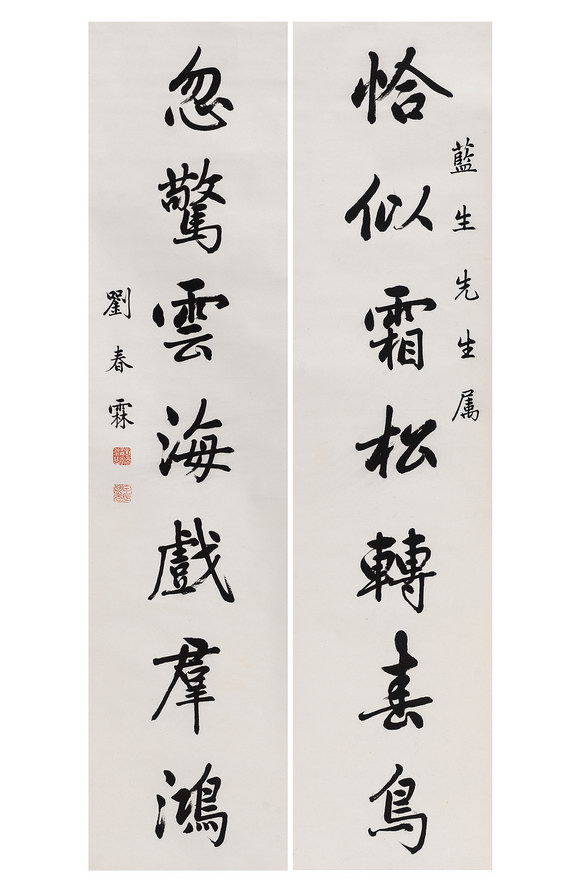 恰似霜松轉春鳥
藍生先生属
忽驚雲海戲群鴻
劉春霖